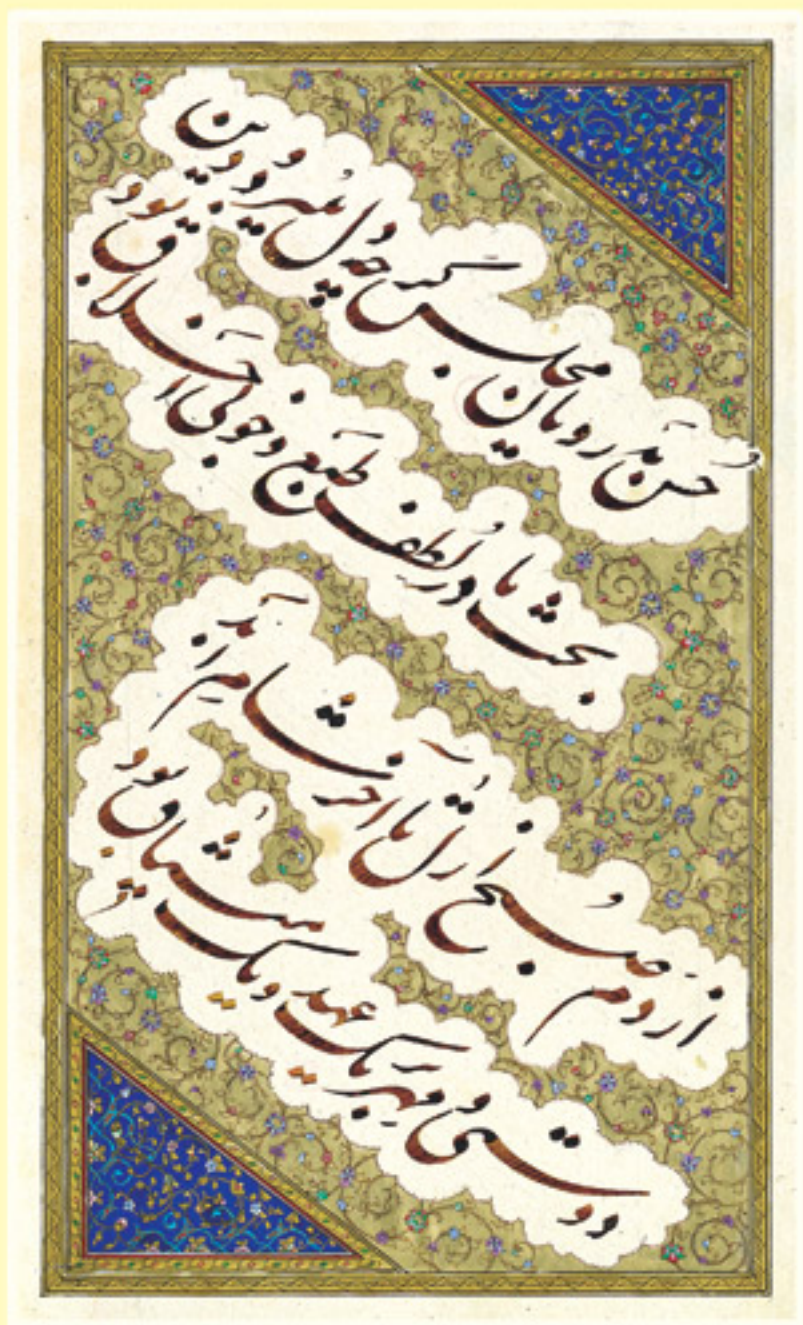 حُسن مه رویان مجلس گرچه دل میبرد و دین
بحث ما در لُطف طبع و خوبی اخلاق بود
از دم صُبح ازل تا آخر شام ابد
دوستی و مِهر بر یک عهد و یک میثاق بود